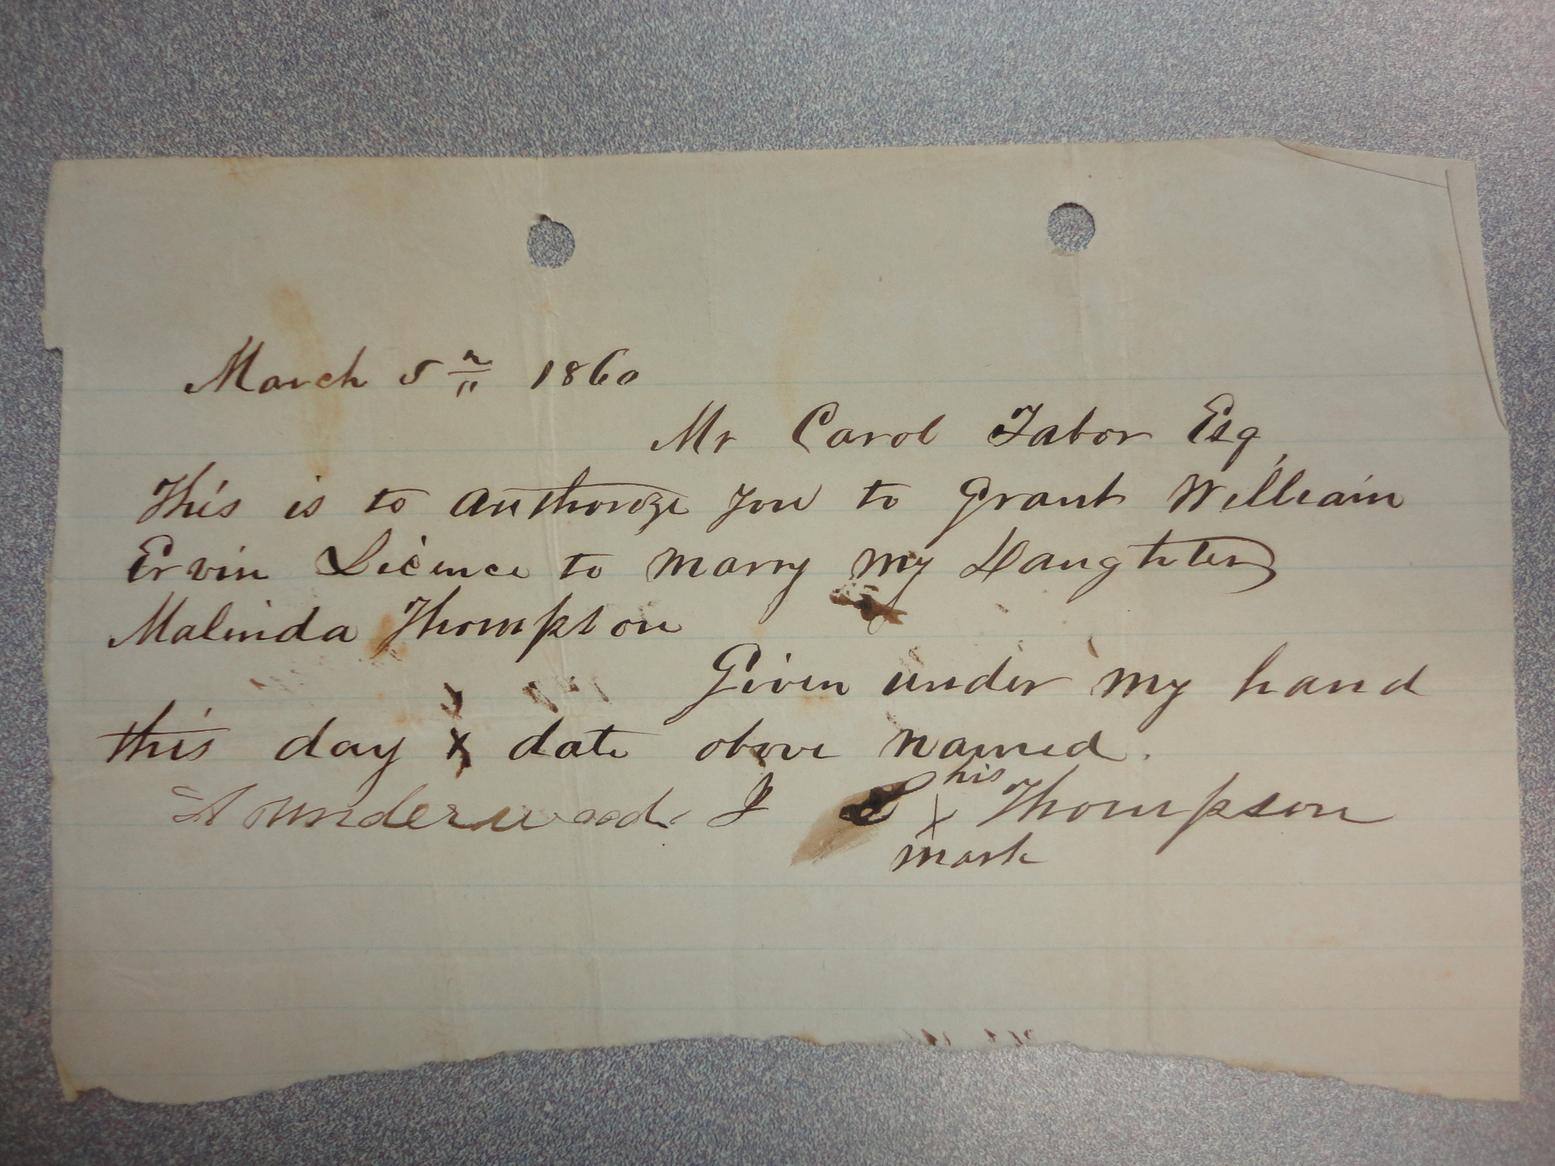 March 5th 1860
Mr Carol Tabor Esq
This is to authorize you to grant William
Ervin Licence to marry my Daughter
Malinda Thompson
Given under my hand
this day & date above named.
his
A underwood. J X Thompson
mark